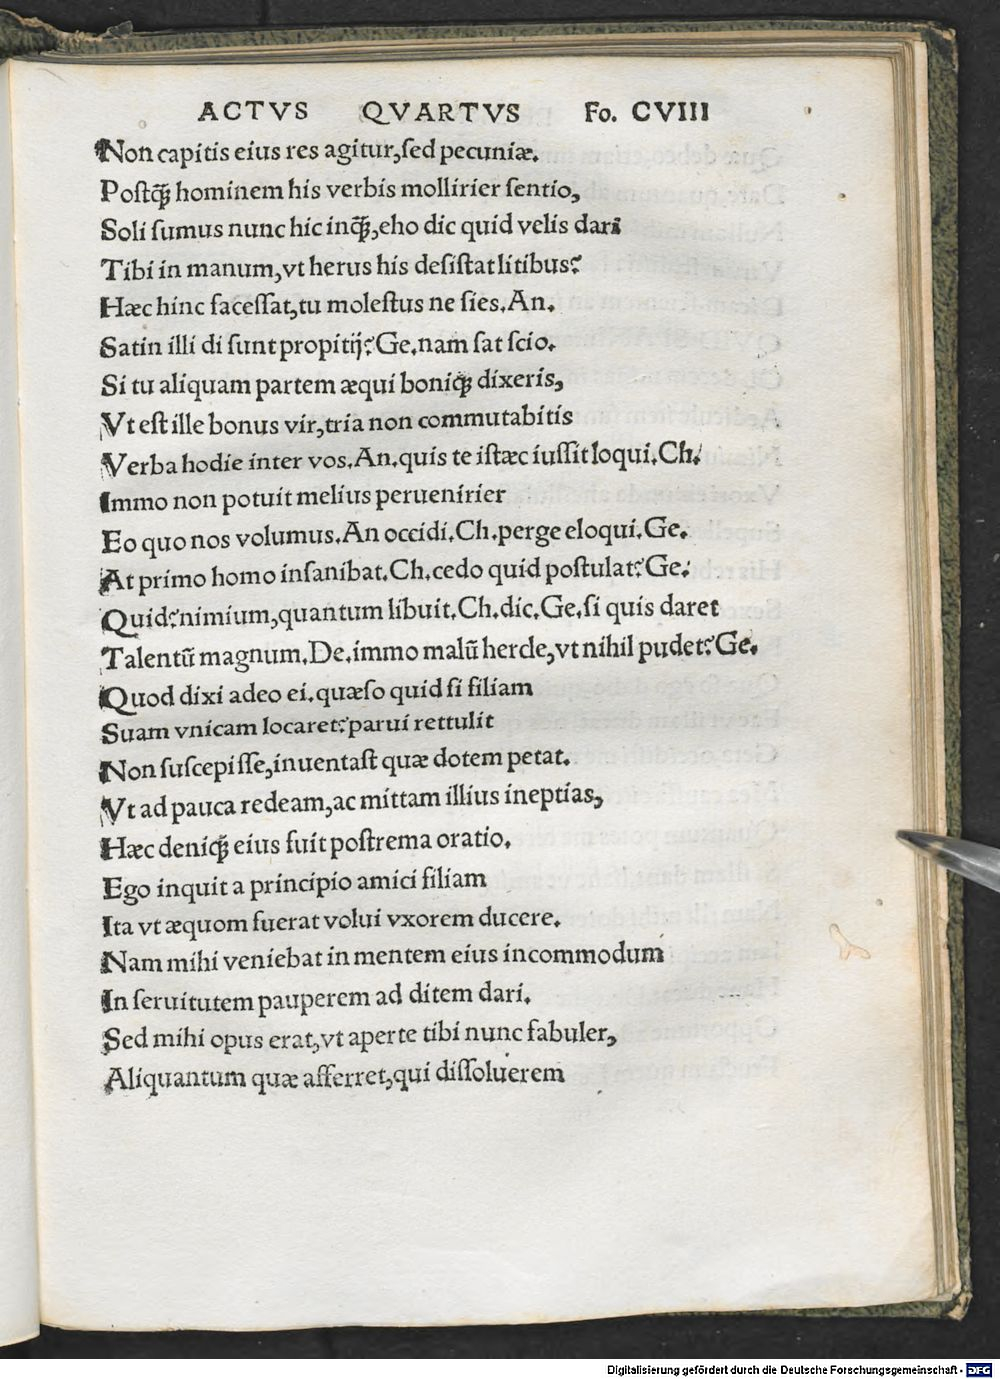 ACTVS QVARTVS Fo. CVIII
Non capitis eius res agitur,sed pecuniæ.
Postq̃ hominem his verbis mollirier sentio,
Soli sumus nunc hic inq̃,eho dic quid velis dari
Tibi in manum,vt herus his desistat litibus?
Hæc hinc facessat,tu molestus ne sies.An.
Satin illi di sunt propitij?Ge.nam sat scio.
Si tu aliquam partem æqui boniq; dixeris,
Vt est ille bonus vir,tria non commutabitis
Verba hodie inter vos.An.quis te istæc iussit loqui.Ch.
Immo non potuit melius peruenirier
Eo quo nos volumus.An occidi.Ch.perge eloqui.Ge.
At primo homo insanibat.Ch.cedo quid postulat?Ge.
Quid?nimium,quantum libuit.Ch.dic.Ge.si quis daret
Talentũ magnum.De.immo malũ hercle,vt nihil pudet?Ge.
Quod dixi adeo ei.quæso quid si filiam
Suam vnicam locaret?parui rettulit
Non suscepisse,inuentast quæ dotem petat.
Vt ad pauca redeam,ac mittam illius ineptias,
Hæc deniq; eius fuit postrema oratio.
Ego inquit a principio amici filiam
Ita vt æquom fuerat volui vxorem ducere.
Nam mihi veniebat in mentem eius incommodum
In seruitutem pauperem ad ditem dari.
Sed mihi opus erat,vt aperte tibi nunc fabuler,
Aliquantum quæ afferret,qui dissoluerem
Digitalisierung gefördert durch die Deutsche Forschungsgemeinschaft - DFG